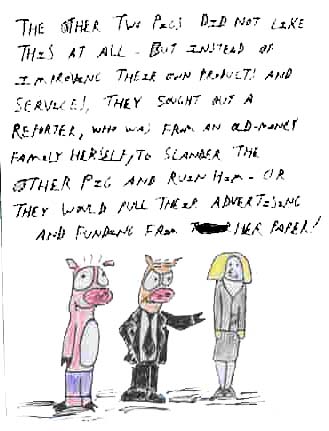 THE OTHER TWO PIGS DID NOT LIKE
THIS AT ALL - BUT INSTEAD OF
IMPROVING THEIR OWN PRODUCTS AND
SERVICES, THEY SOUGHT OUT A
REPORTER, WHO WAS FROM AN OLD-MONEY
FAMILY HERSELF, TO SLANDER THE
OTHER PIG AND RUIN HIM - OR
THEY WOULD PULL THEIR ADVERTISING
AND FUNDING FROM HER PAPER!